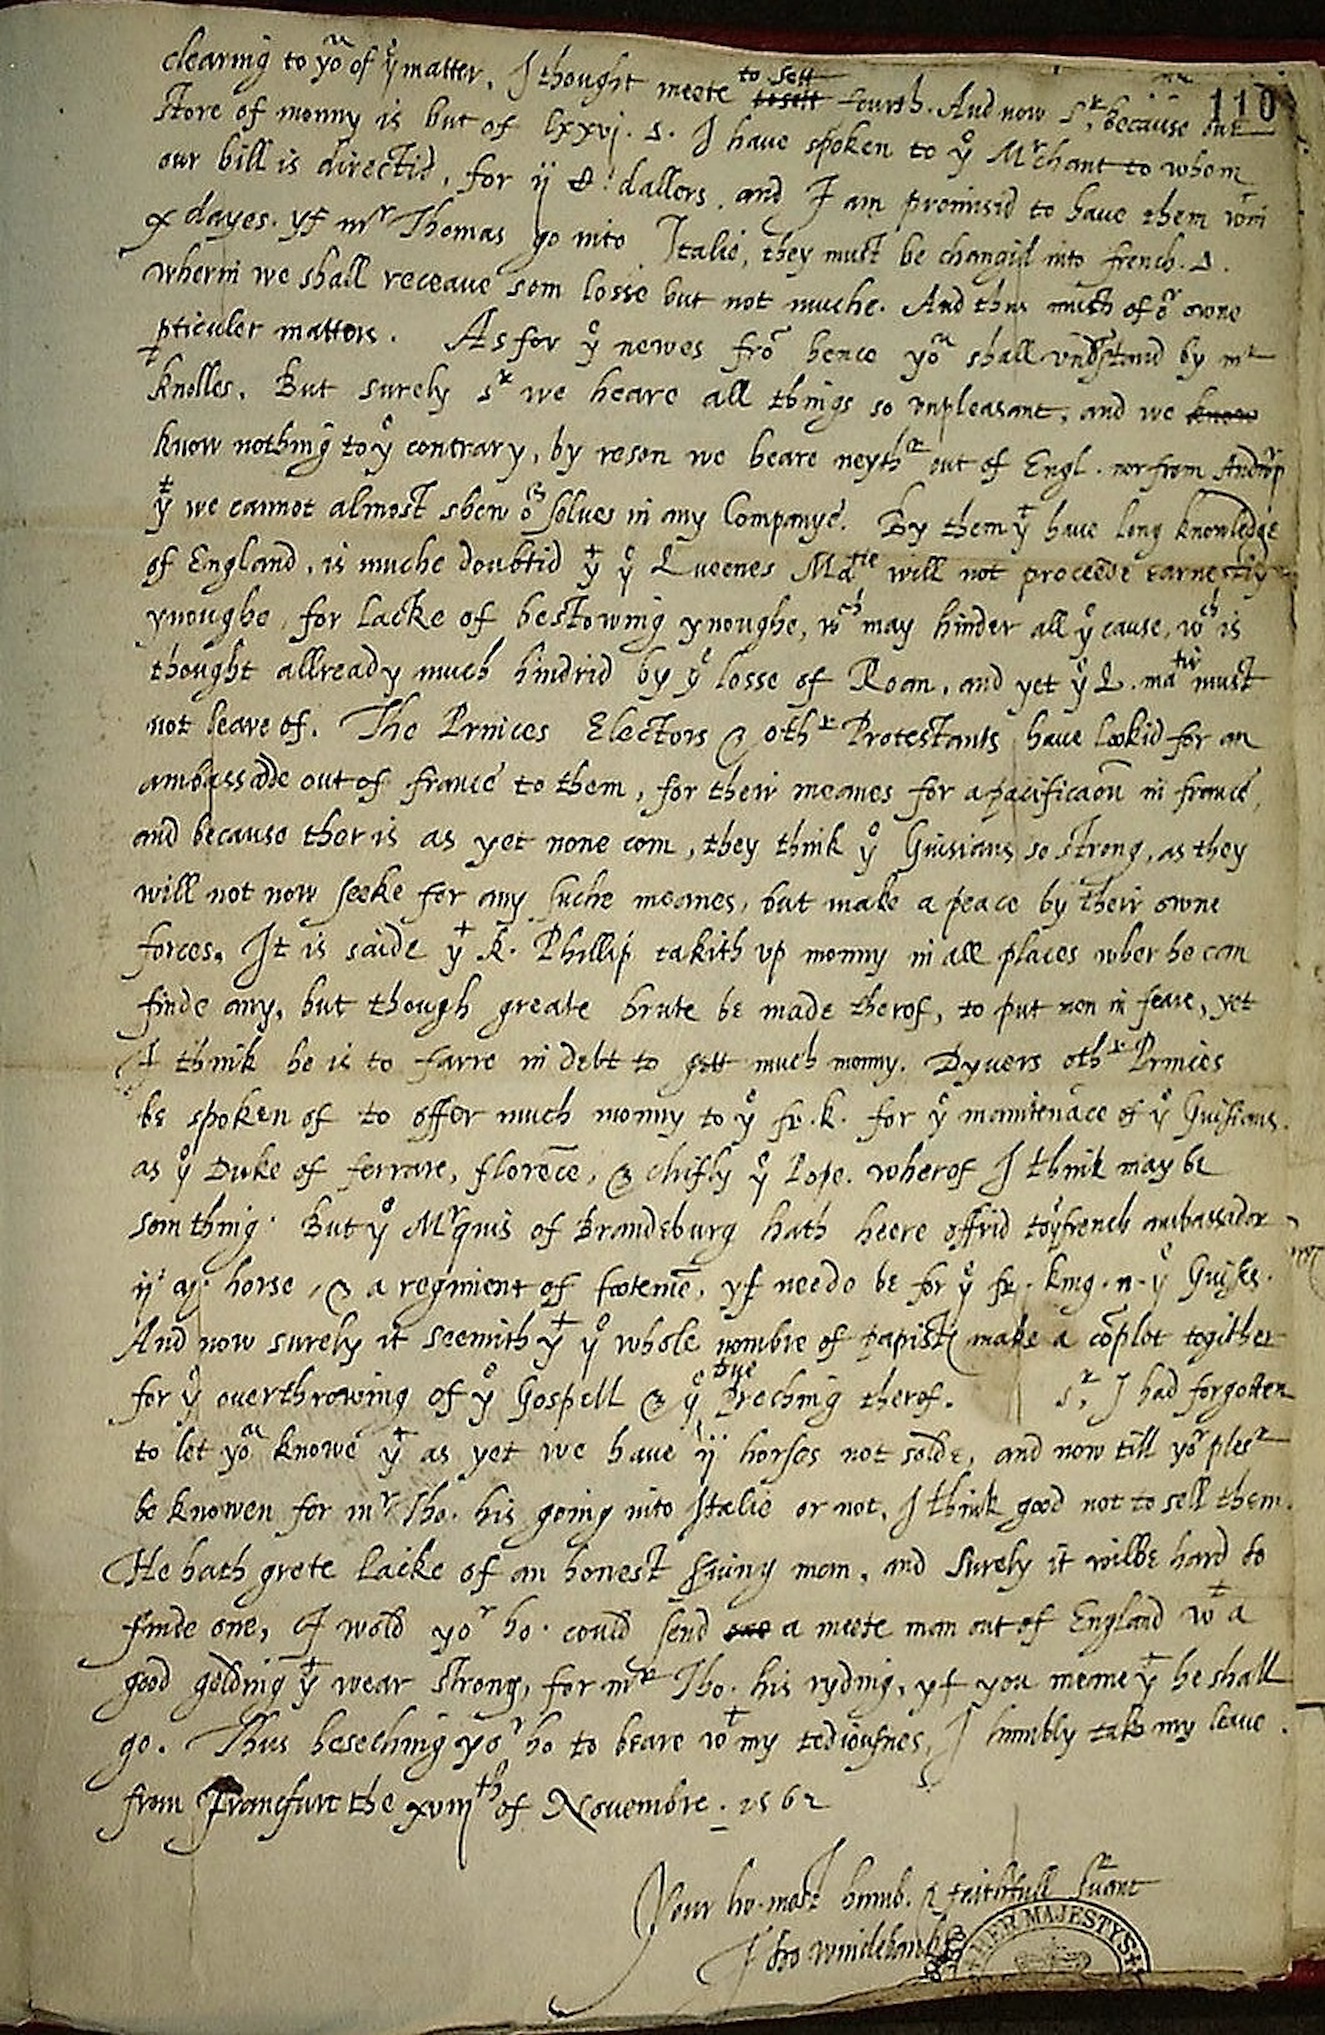 clearing to yoᵘ of yᵉ matter, I thought meete to sett tosett fourth. And now Sʳ, because our
110
store of monny is but of lxxvj. s. I have spoken to yᵉ Mʳchant to whom
our bill is directid, for ij C dallers, and I am promisid to have them wᵗin
x dayes. yf mʳ Thomas go into Italie, they must be changid into french. s.
wherin we shall receaue som losse but not muche. And thus much of oʳ owne
pticuler matters. As for yᵉ newes frō hence yoᵘ shall vndʳstand by mʳ
knolles. But surely sʳ we heare all things so vnpleasant, and we know
know nothing to yᵉ contrary, by reson we heare neythʳ out of Engl. nor from Andwʳp
yᵗ we cannot almost shew oʳ selves in any Companye. By them yᵗ have long knowledge
of England, is muche doubtid yᵗ yᵉ Queenes Maᵗⁱᵉ will not proceede earnestly
ynoughe, for lacke of bestowing ynoughe, wᶜʰ may hinder all yᵉ cause, wᶜʰ is
thought allready much hindrid by yᵉ losse of Roan, and yet yᵉ Q. maᵗⁱᵉ must
not leave of. The Princes Electors & othʳ Protestants have lookid for an
ambassade out of france to them, for their meanes for a pacificaōn in france,
and because ther is as yet none com, they think yᵉ Guisians so strong, as they
will not now seeke for any suche meanes, but make a peace by their owne
forces. It is saide yᵗ k. Phillip takith vp monny in all places wher he can
finde any, but though greate brute be made therof, to put men in feare, yet
I think he is to farre in debt to gett much monny. Dyvers othʳ Princes
be spoken of to offer much monny to yᵉ fr. k. for yᵉ maintenāce of yᵉ Guisians.
as yᵉ Duke of ferrare, florēce, & chifly yᵉ Pope. wherof I think may be
som thing. But yᵉ Mʳquis of Brandeburg hath heere offrid to yᵉ french ambassador
ij ᵐ horse, & a regiment of footemē, yf neede be for yᵉ fr. king. n. yᵉ Guises.
And now surely it seemith yᵗ yᵉ whole nombre of papists make a cōplot togither
for yᵉ overthrowing of yᵉ Gospell & yᵉ true Preching therof. Sʳ, I had forgotten
to let yoᵘ knowe yᵗ as yet we have ij horses not solde, and now till yoʳ plesʳ
be knowen for mʳ Tho. his going into Italie or not, I think good not to sell them.
He hath grete lacke of an honest sʳuing man, and surely it wilbe hard to
finde one, I wold yoʳ ho. could send one a meete man out of England wᵗ a
good gelding yᵗ wear strong, for mʳ Tho. his ryding, yf you meane yᵗ he shall
go. Thus beseching yoʳ ho to beare wᵗ my tediousnes, I humbly take my leave.
from Francfurt the xviijᵗʰ of Novembre. 1562
Your ho. most humb. & faithfull sʳuant
Tho windebank
HER MAJESTYS